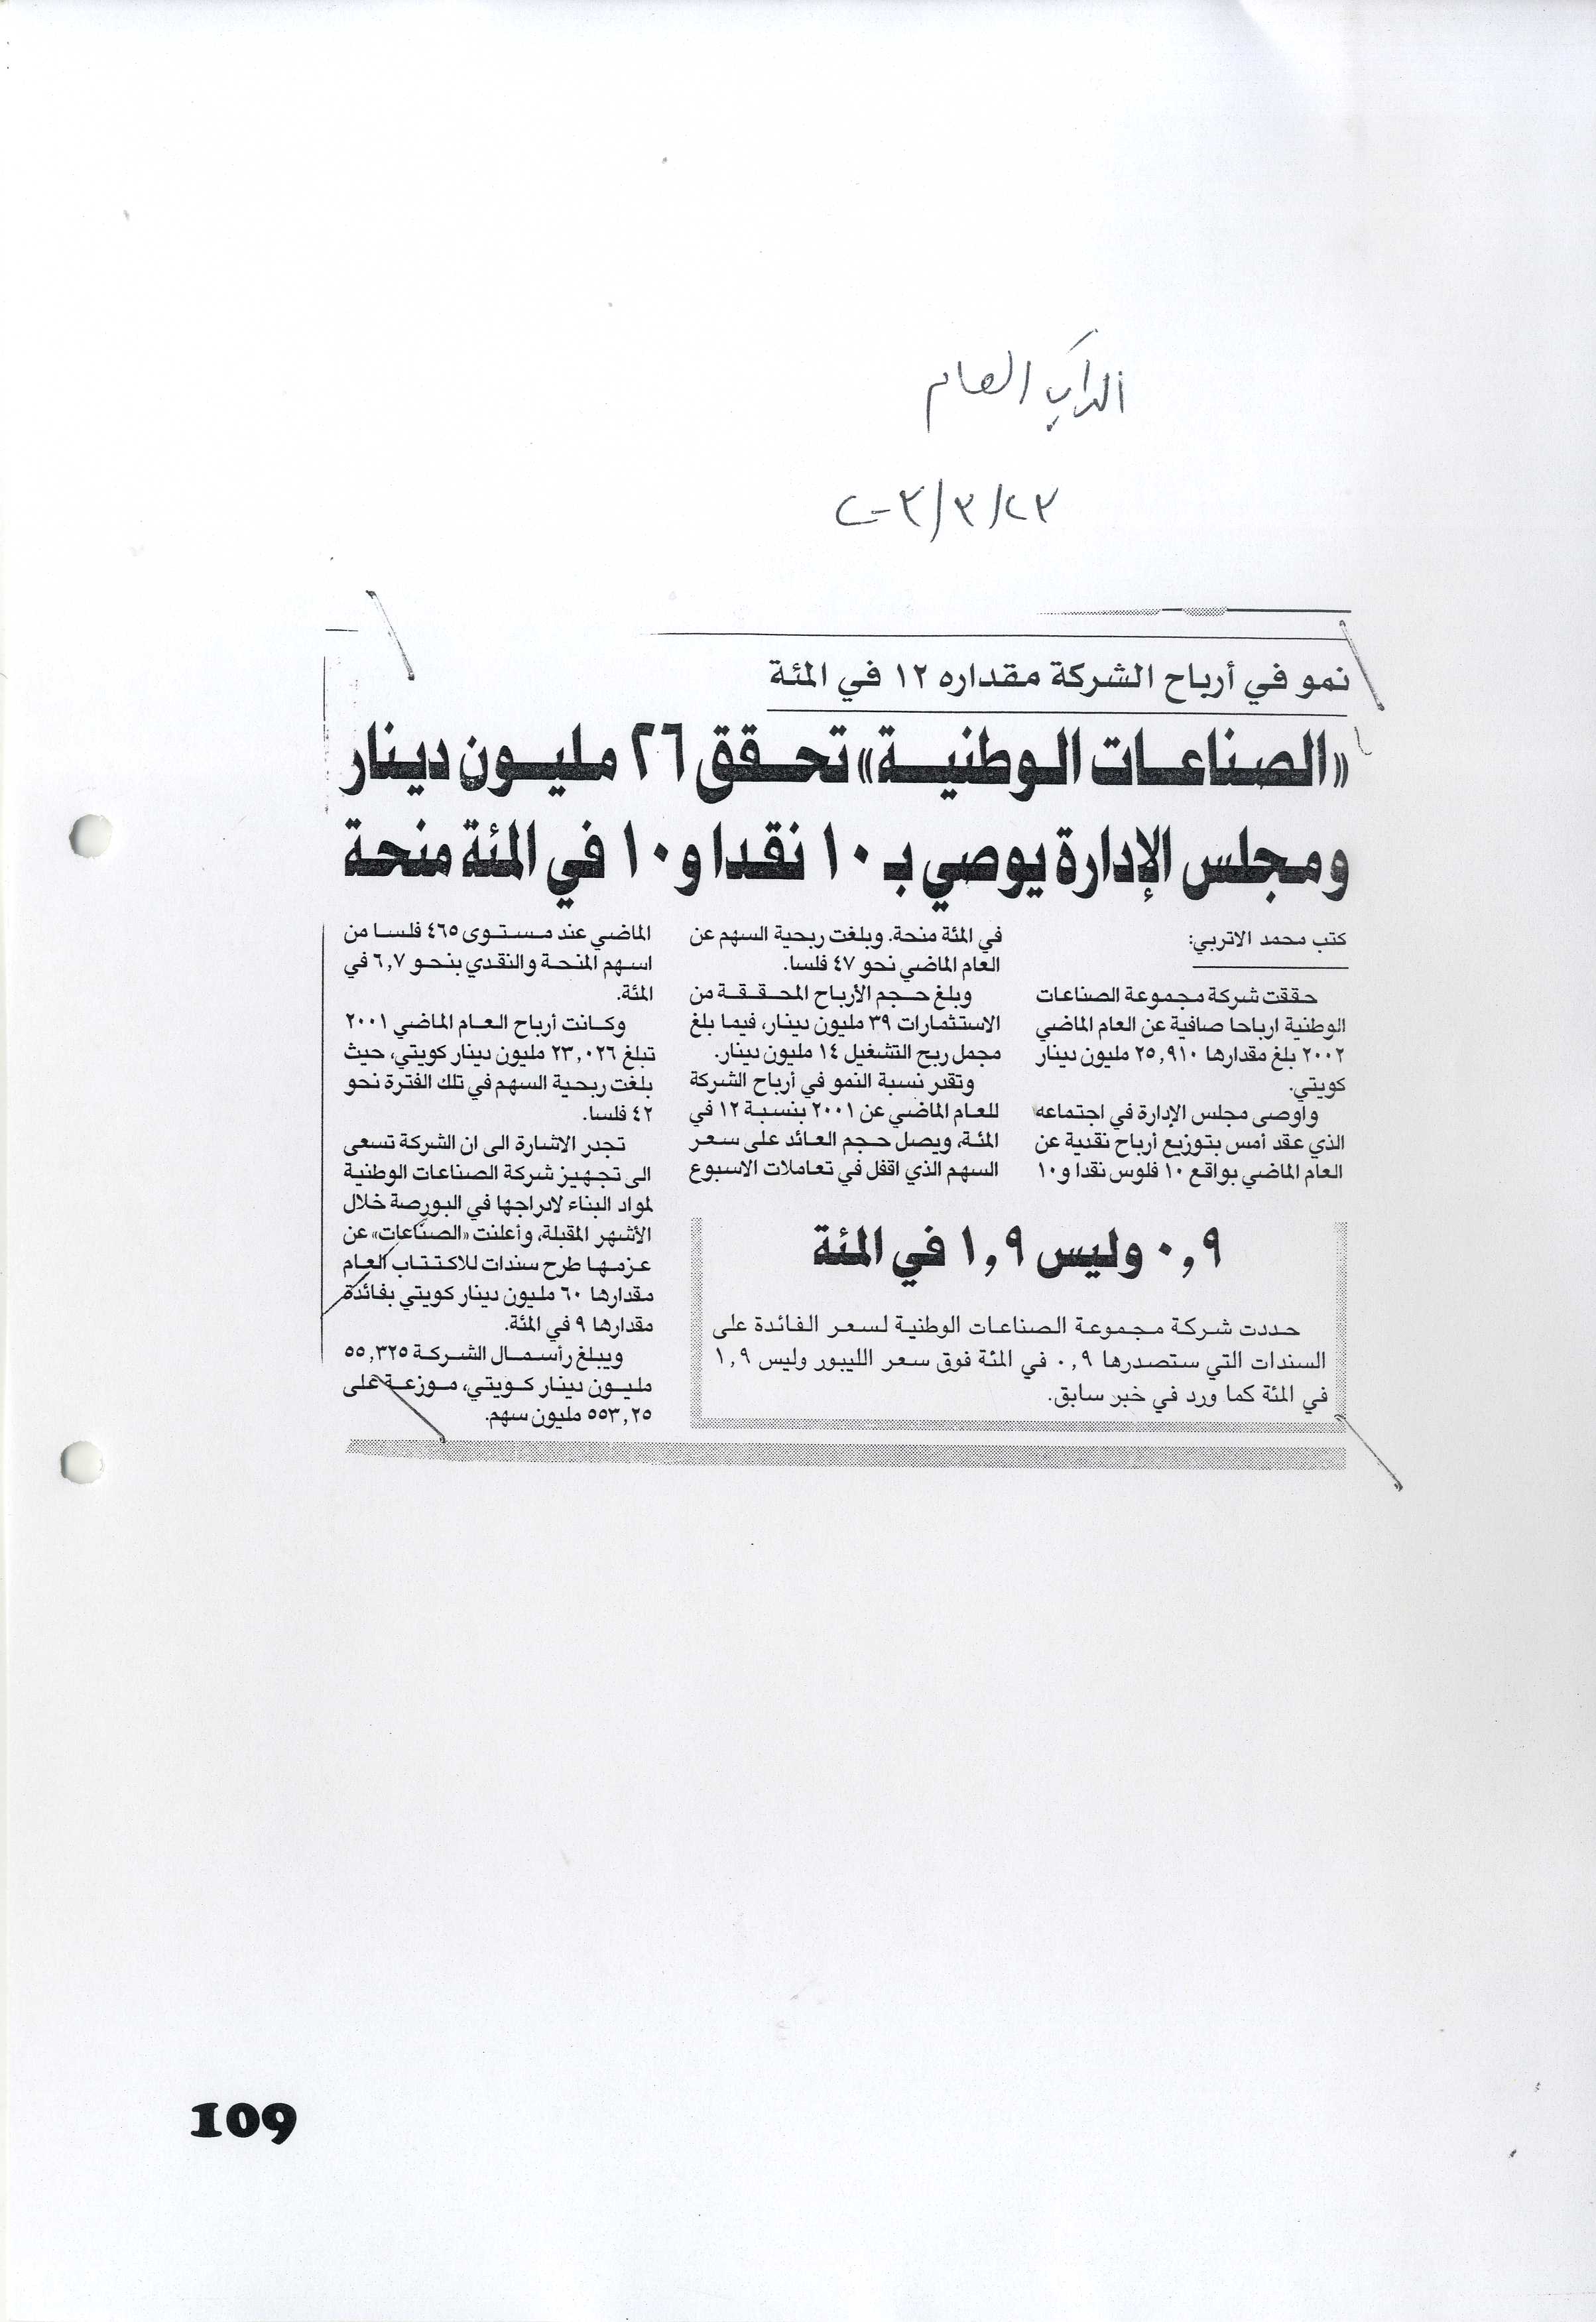 الرأي العام
٢٠٠٣/٣/٢٣
نمو في أرباح الشركة مقداره ١٢ في المئة
«الصناعات الوطنية» تحقق ٢٦ مليون دينار
ومجلس الإدارة يوصي بـ ١٠ نقدا و١٠ في المئة منحة
كتب محمد الاتربي:
حققت شركة مجموعة الصناعات
الوطنية ارباحا صافية عن العام الماضي
٢٠٠٢ بلغ مقدارها ٢٥,٩١٠ مليون دينار
كويتي.
واوصى مجلس الإدارة في اجتماعه
الذي عقد أمس بتوزيع أرباح نقدية عن
العام الماضي بواقع ١٠ فلوس نقدا و١٠
في المئة منحة. وبلغت ربحية السهم عن
العام الماضي نحو ٤٧ فلسا.
وبلغ حجم الأرباح المحققة من
الاستثمارات ٣٩ مليون دينار، فيما بلغ
مجمل ربح التشغيل ١٤ مليون دينار.
وتقدر نسبة النمو في أرباح الشركة
للعام الماضي عن ٢٠٠١ بنسبة ١٢ في
المئة، ويصل حجم العائد على سعر
السهم الذي اقفل في تعاملات الاسبوع
الماضي عند مستوى ٤٦٥ فلسا من
اسهم المنحة والنقدي بنحو ٦,٧ في
المئة.
وكانت أرباح العام الماضي ٢٠٠١
تبلغ ٢٣,٠٢٦ مليون دينار كويتي، حيث
بلغت ربحية السهم في تلك الفترة نحو
٤٢ فلسا.
تجدر الاشارة الى ان الشركة تسعى
الى تجهيز شركة الصناعات الوطنية
لمواد البناء لادراجها في البورصة خلال
الأشهر المقبلة، وأعلنت «الصناعات» عن
عزمها طرح سندات للاكتتاب العام
مقدارها ٦٠ مليون دينار كويتي بفائدة
مقدارها ٩ في المئة.
ويبلغ رأسمال الشركة ٥٥,٣٢٥
مليون دينار كويتي، موزعة على
٥٥٣,٢٥ مليون سهم.
٠,٩ وليس ١,٩ في المئة
حددت شركة مجموعة الصناعات الوطنية لسعر الفائدة على
السندات التي ستصدرها ٠,٩ في المئة فوق سعر الليبور وليس ١,٩
في المئة كما ورد في خبر سابق.
109